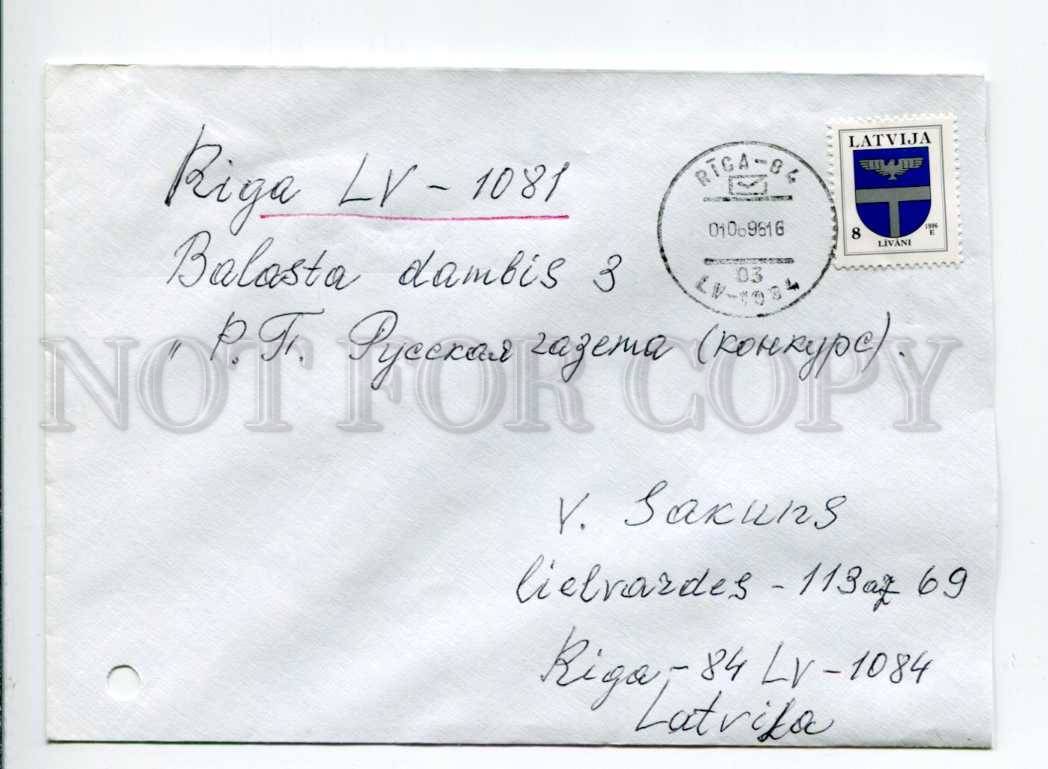 Riga LV - 1081
Balasta dambis 3
„ Р.П. Русская газета (конкурс).
LATVIJA
8
1996
E
LĪVĀNI
RĪGA-84
01069616
03
LV-1084
NOT FOR COPY
V. Sakuns
lielvardes - 113 69
Riga - 84 LV - 1084
Latvija